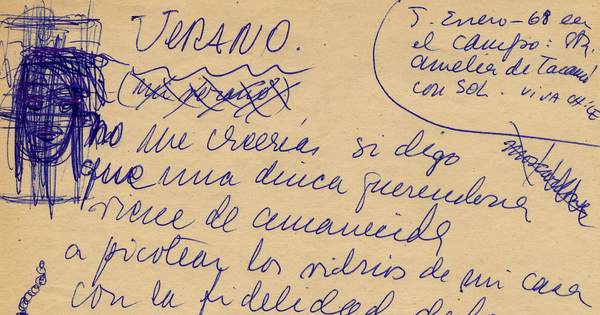 VERANO.
5. Enero - 68 en
el campo:
amelia de
con SOL. VIVA CHILE
(mi verano)
no me creerías si digo
que una diuca querendona
viene de amanecida
a picotear los vidrios de mi casa
con la fidelidad